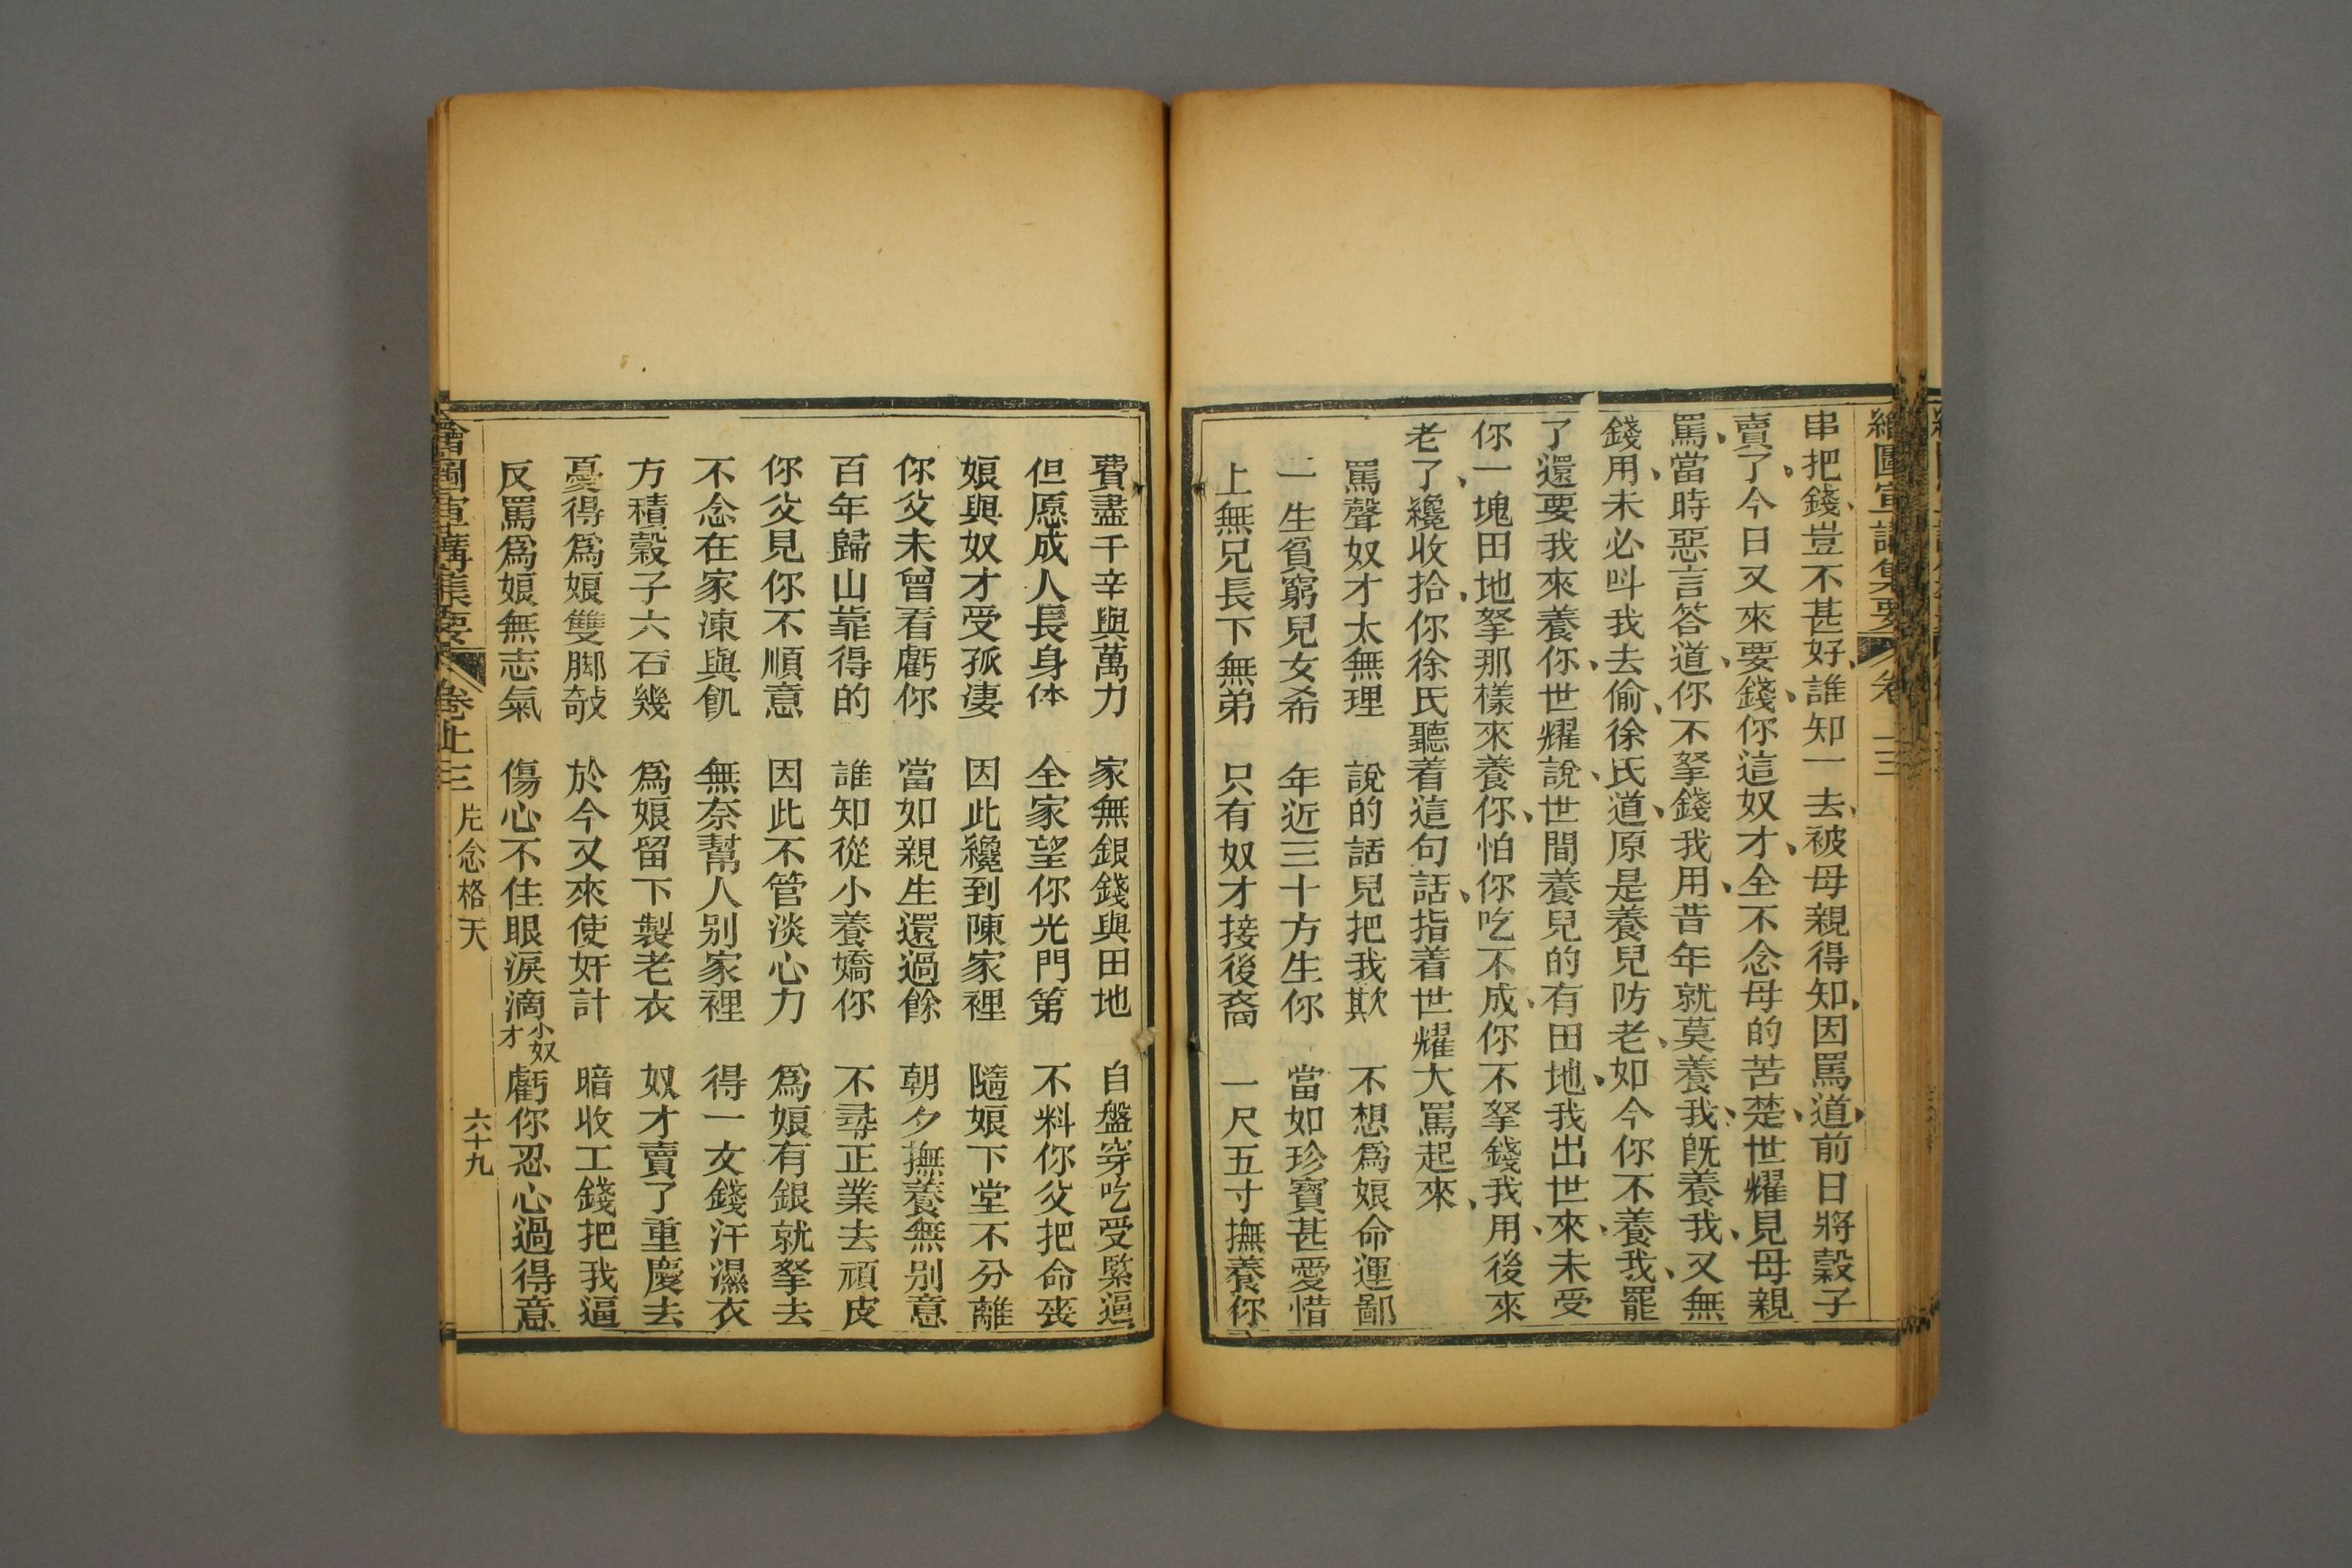 繪圖宣講集要 卷上三
串把錢、豈不甚好、誰知一去、被母親得知、因罵道、前日將穀子
賣了、今日又來要錢、你這奴才、全不念母的苦楚、世耀見母親
罵、當時惡言答道、你不拏錢我用、昔年就莫養我、旣養我、又無
錢用、未必呌我去偷、徐氏道、原是養兒防老、如今你不養我、罷
了還要我來養你、世耀說、世間養兒的有田地、我出世來、未受
你一塊田地、拏那樣來養你、怕你吃不成、你不拏錢我用、後來
老了、纔收拾你、徐氏聽着這句話、指着世耀大罵起來、
罵聲奴才太無理 說的話兒把我欺 不想爲娘命運鄙
一生貧窮兒女希 年近三十方生你 當如珍寶甚愛惜
上無兄長下無弟 只有奴才接後裔 一尺五寸撫養你
費盡千辛與萬力 家無銀錢與田地 自盤穿吃受緊逼
但愿成人長身体 全家望你光門第 不料你父把命丧
娘與奴才受孤凄 因此纔到陳家裡 隨娘下堂不分離
你父未曾看虧你 當如親生還過餘 朝夕撫養無别意
百年歸山靠得的 誰知從小養嬌你 不尋正業去頑皮
你父見你不順意 因此不管淡心力 爲娘有銀就拏去
不念在家凍與飢 無奈幫人别家裡 得一文錢汗濕衣
方積穀子六石幾 爲娘留下製老衣 奴才賣了重慶去
憂得爲娘雙脚敧 於今又來使奸計 暗收工錢把我逼
反罵爲娘無志氣 傷心不住眼淚滴 小奴才 虧你忍心過得意
繪圖宣講集要 卷上三 片念格天 六十九